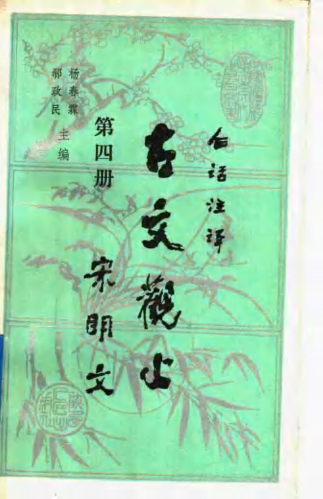 白话注译
古文觀止
宋明文
第四册
杨春霖
郝政民
主编